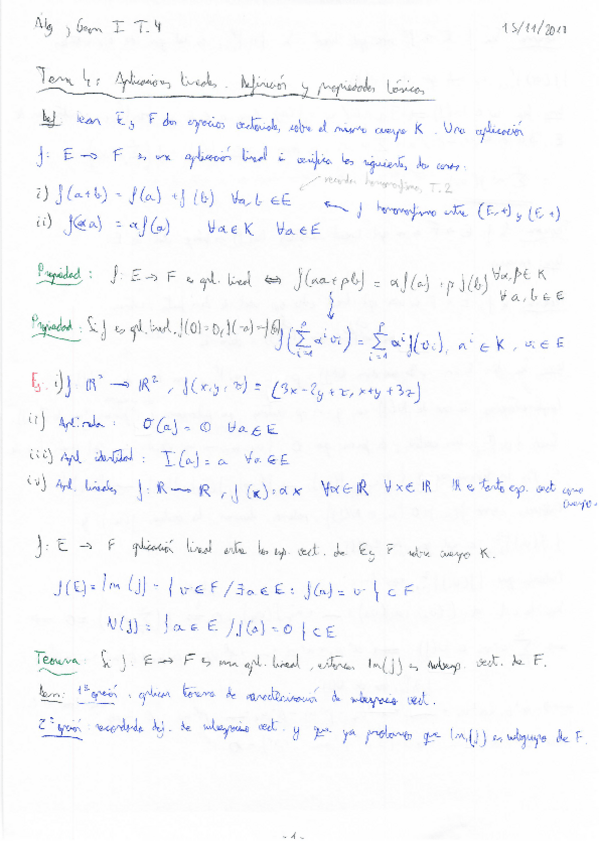 Alg y Geom I T.4 15/11/2017
Tema 4: Aplicaciones lineales. Definición y propiedades básicas
Def Sean E y F dos espacios vectoriales sobre el mismo cuerpo K. Una aplicación
f: E → F es una aplicación lineal si verifica las siguientes dos cosas:
recordar homomorfismo, T.2
i) f(a+b) = f(a) + f(b) ∀a,b ∈ E ← f homomorfismo entre (E,+) y (F,+)
ii) f(αa) = αf(a) ∀α∈K ∀a∈E
Propiedad: f: E → F es apl. lineal ⇔ f(αa+βb) = αf(a) + βf(b) ∀α,β∈K ∀a,b∈E
Propiedad: Si f es apl. lineal, f(0)=0, f(-a)=-f(a)
f(∑_{i=1}^p α^i v_i) = ∑_{i=1}^p α^i f(v_i), α^i ∈ K, v_i ∈ E
Ej: i) f: ℝ³ → ℝ², f(x,y,z) = (3x-2y+z, x+y+3z)
ii) Apl. nula: O(a) = 0 ∀a∈E
iii) Apl. identidad: I(a) = a ∀a∈E
iv) Apl. lineales f: ℝ → ℝ, f(x)=αx ∀α∈ℝ ∀x∈ℝ ℝ es tanto esp. vect como cuerpo
f: E → F aplicación lineal entre los esp. vect. de E y F sobre cuerpo K.
f(E) = Im(f) = {v∈F / ∃a∈E: f(a)=v} ⊂ F
N(f) = {a∈E / f(a)=0} ⊂ E
Teorema: Si f: E → F es una apl. lineal, entonces Im(f) es subesp. vect. de F.
Dem: 1ª opción: aplicar teorema de caracterización de subespacio vect.
2ª opción: recordando def. de subespacio vect. y que ya probamos que Im(f) es subgrupo de F.
-1-